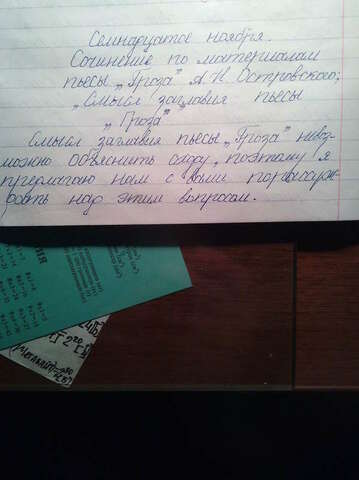 Семнадцатое ноября.
Сочинение по материалам
пьесы „Гроза" А.Н. Островского:
„Смысл заглавия пьесы
„Гроза"
Смысл заглавия пьесы „Гроза" невоз-
можно объяснить сразу, поэтому я
предлагаю нам с вами порассуж-
дать над этим вопросом.